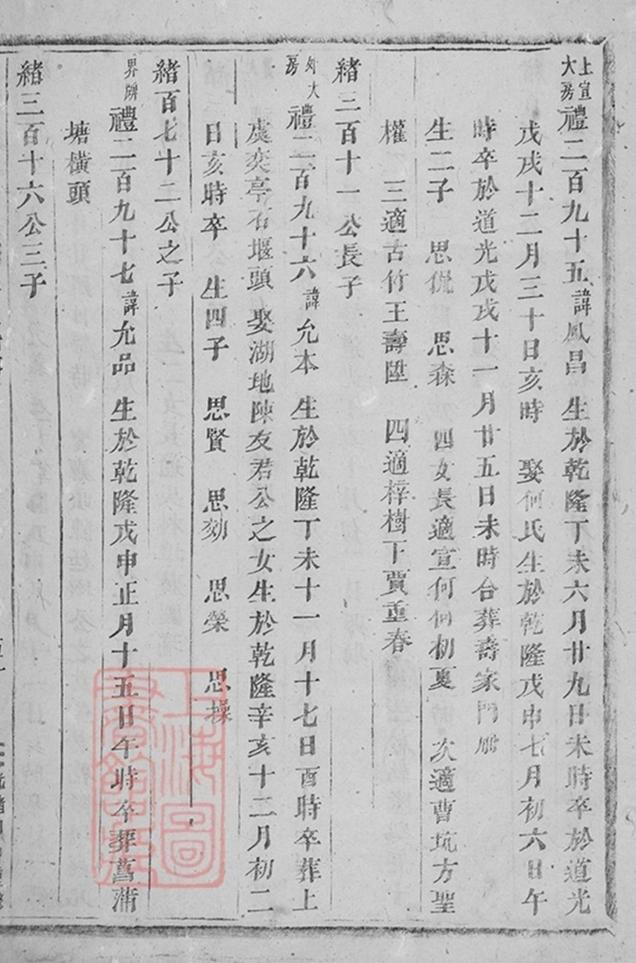 上宣大房禮二百九十五諱鳳昌 生於乾隆丁未六月廿九日未時卒於道光
戊戌十二月三十日亥時 娶何氏生於乾隆戊申七月初六日午
時卒於道光戊戌十一月廿五日未時合葬壽家門
生二子 思侃 思森 四女長適宣何何初夏 次適曹坑方聖
權 三適古竹王壽陞 四適梓樹下賈重春
緒三百十一公長子
大房禮二百九十六諱允本 生於乾隆丁未十一月十七日酉時卒葬上
虞奕亭石堰頭 娶湖地陳友君公之女生於乾隆辛亥十二月初二
日亥時卒 生四子 思賢 思効 思榮 思操
緒百七十二公之子
界牌禮二百九十七諱允品 生於乾隆戊申正月十五日午時卒葬菖蒲
塘橫頭
緒三百十六公三子
上海圖書館藏